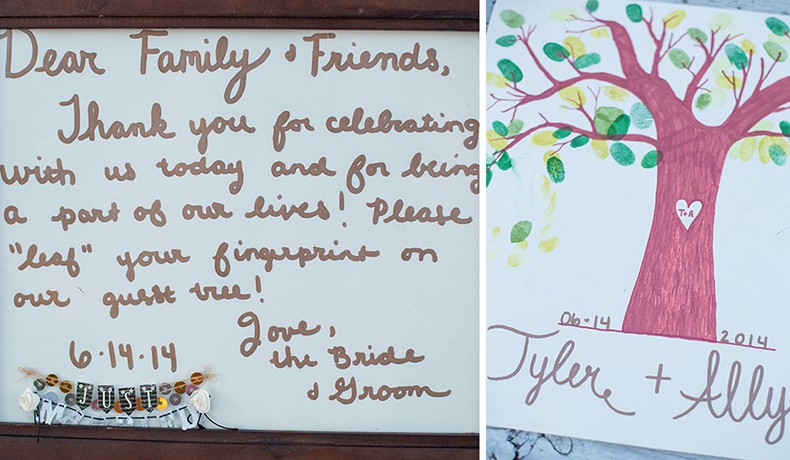 Dear Family & Friends,
Thank you for celebrating
with us today and for being
a part of our lives! Please
"leaf" your fingerprint on
our guest tree!
Love,
the Bride
& Groom
6.14.14
JUST
T+A
06-14
2014
Tyler + Ally